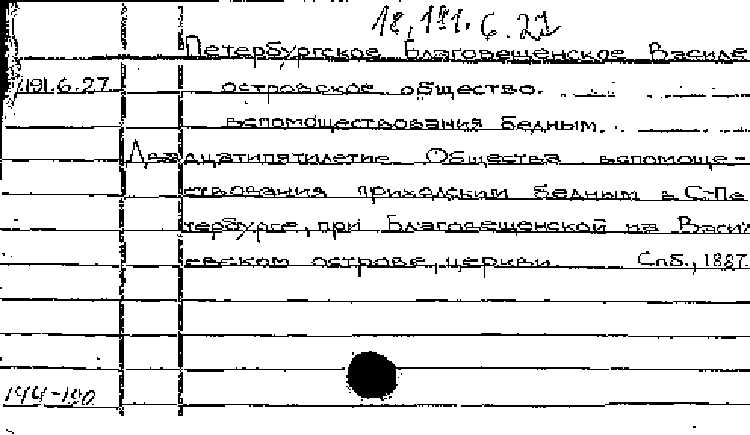 18.191.6.27
Петербургское Благовещенское Василе
191.6.27 островское общество.
вспомоществования бедным.
Двадцатипятилетие Общества вспомоще-
ствования приходским бедным в С-Пе
тербурге, при Благовещенской на Васил
евском острове, церкви. Спб., 1887
144-190